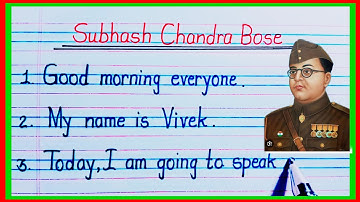 Subhash Chandra Bose
1. Good morning everyone.
2. My name is Vivek.
3. Today, I am going to speak